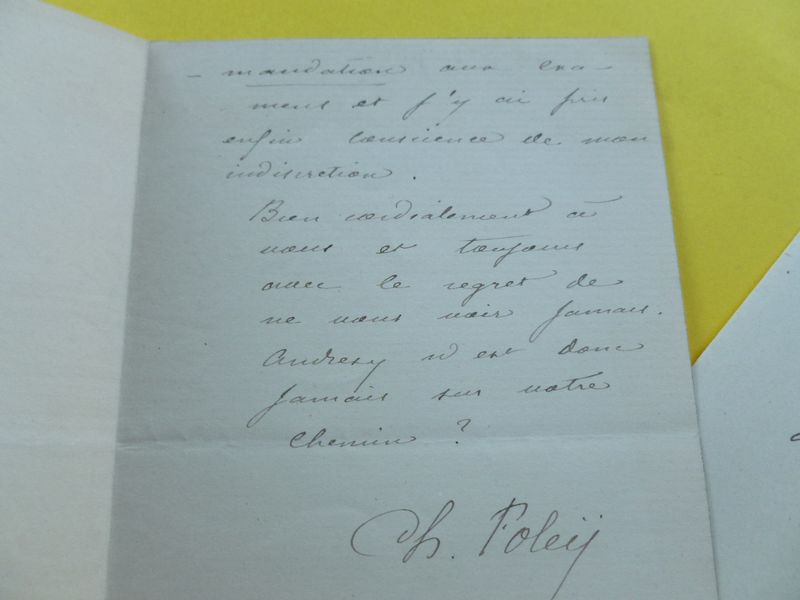 - mandation aux exa-
mens et j'y ai pris
enfin conscience de mon
indiscrétion.
Bien cordialement à
vous et toujours
avec le regret de
ne vous voir jamais.
Andrésy n'est donc
jamais sur votre
chemin ?
Ch. Foleÿ